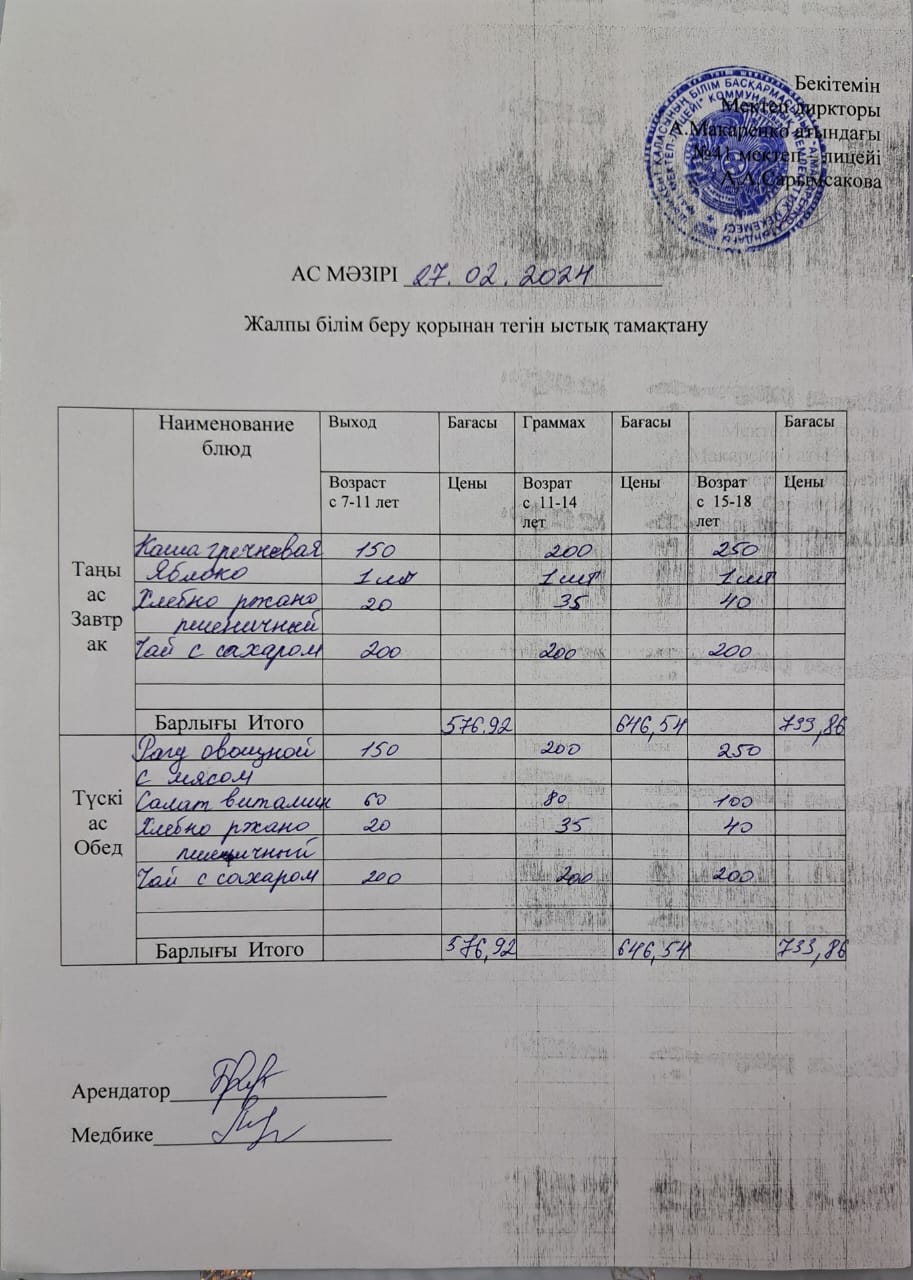 Бекітемін
Мектеп диркторы
А.Макаренко атындағы
№41 мектеп - лицейі
А.А.Сарымсакова
АС МӘЗІРІ 27. 02. 2024
Жалпы білім беру қорынан тегін ыстық тамақтану
Наименование блюд Выход Бағасы Граммах Бағасы Бағасы
Возраст с 7-11 лет Цены Возрат с 11-14 лет Цены Возрат с 15-18 лет Цены
Таңы ас Завтр ак
Каша гречневая 150 200 250
Яблоко 1 шт 1 шт 1 шт
Хлебно ржано 20 35 40
пшеничный
Чай с сахаром 200 200 200
Барлығы Итого 576.92 646,54 733,86
Түскі ас Обед
Рагу овощной 150 200 250
с мясом
Салат витамин 60 80 100
Хлебно ржано 20 35 40
пшеничный
Чай с сахаром 200 200 200
Барлығы Итого 576,92 646,54 733,86
Арендатор
Медбике